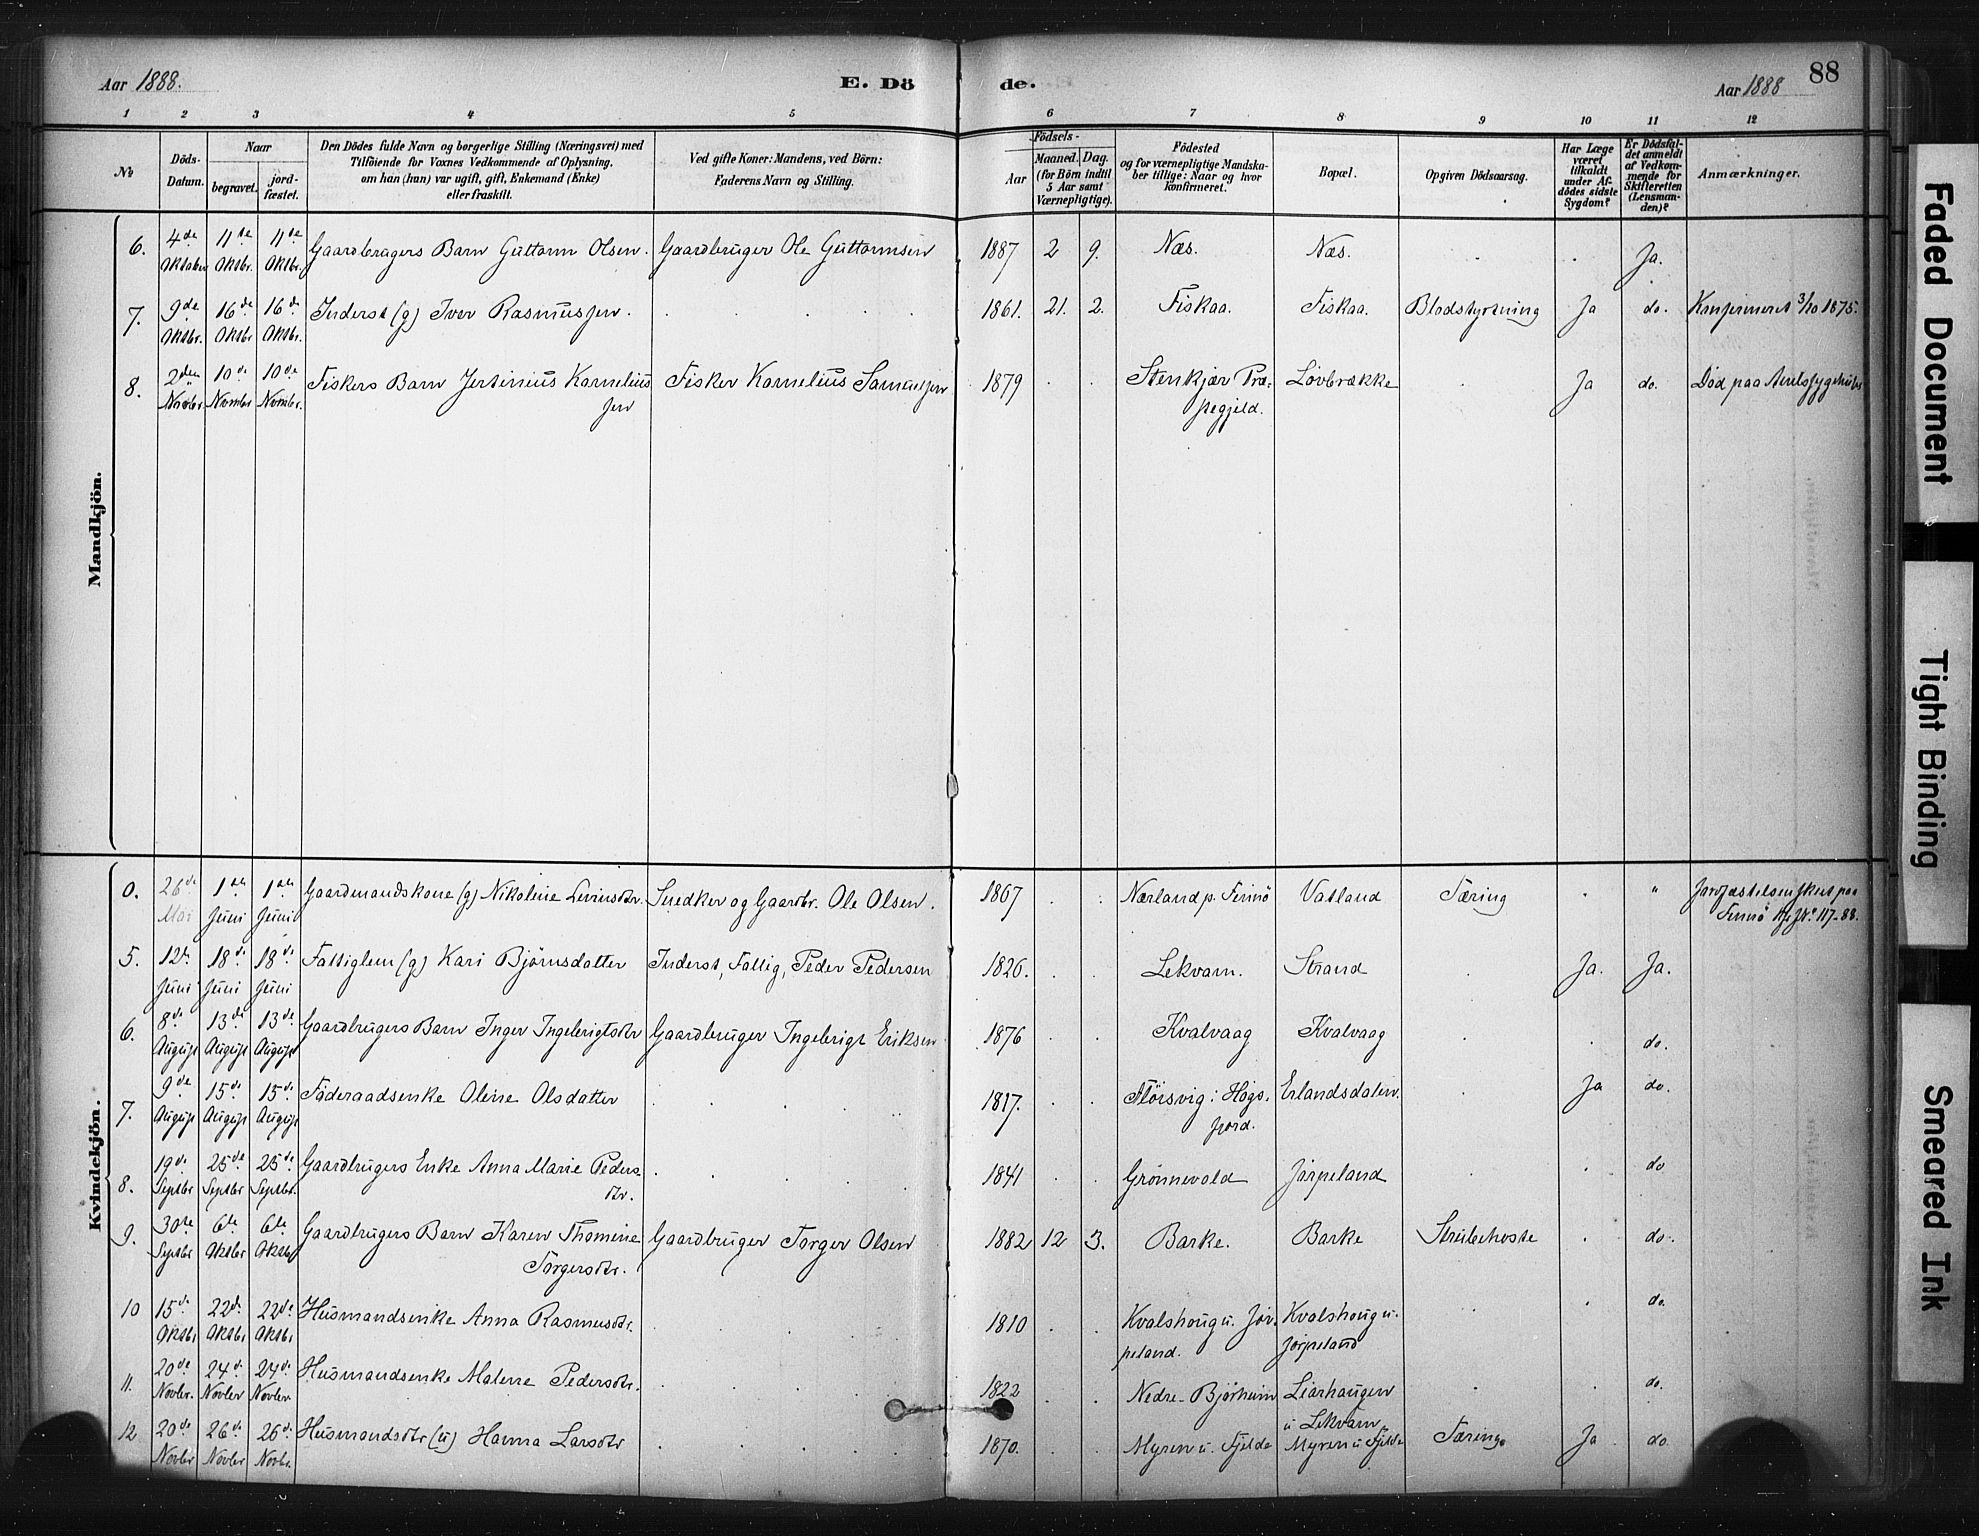 Aar 1888.
E. Dö
de.
Aar 1888
88
1 2 3 4 5 6 7 8 9 10 11 12
№
Döds-
Datum.
Naar
begravet.
jord-
fæstet.
Den Dödes fulde Navn og borgerlige Stilling (Næringsvei) med
Tilföiende for Voxnes Vedkommende af Oplysning,
om han (hun) var ugift, gift, Enkemand (Enke)
eller fraskilt.
Ved gifte Koner: Mandens, ved Börn:
Faderens Navn og Stilling.
Födsels-
Aar
Maaned. Dag.
(for Börn indtil
5 Aar samt
Værnepligtige).
Födested
og for værnepligtige Mandska-
ber tillige: Naar og hvor
konfirmeret.
Bopæl.
Opgiven Dödsaarsag.
Har Læge
været
tilkaldt
under Af-
dödes sidste
Sygdom?
Er Dödsfal-
det anmeldt
af Vedkom-
mende for
Skifteretten
(Lensman-
den)?
Anmærkninger.
Mandkjön.
6. 4de Oktober 11te Oktbr. 11te Oktbr. Gaardbrugers Barn Guttorm Olsen. Gaardbruger Ole Guttormsen 1887 2 9. Næs. Næs. Ja.
7. 9de Oktbr. 16de Oktbr. 16de Oktbr. Inderst (g) Iver Rasmussen. 1861. 21. 2. Fiskaa. Fiskaa. Blodstyrtning Ja do. Konfirmeret 3/10 1875.
8. 2den Novbr. 10de Novmbr. 10de Novmbr. Fiskers Barn Jertinius Kornelius
sen Fisker Kornelius Samuelsen 1879 Stenkjær Præ-
stegjeld. Lovbrække Ja do. Død paa
Kvindekjön.
0. 26de Mai 1ste Juni 1ste Juni Gaardmandskone (g) Nikoleine Levinsdtr. Snedker og Gaardbr. Ole Olsen. 1867 Nærland p. Finnö Vatland Tæring " Jordfæstelsen skeet paa
Finnö 117-88.
5. 12te Juni 18de Juni 18de Juni Fattiglem (g) Kari Bjørnsdatter Inderst, Fattig, Peder Pedersen 1826. Lekvam. Strand Ja. Ja.
6. 8de August 13de August 13de August Gaardbrugers Barn Inger Ingebrigtsdtr Gaardbruger Ingebrigt Eriksen 1876 Kvalvaag Kvalvaag do.
7. 9de August 15de August 15de August Föderaadsenke Oline Olsdatter 1817. Flörsvig i Høgs-
fjord. Erlandsdalen. Ja do.
8. 19de Septbr 25de Septbr 25de Septbr. Gaardbrugers Enke Anna Marie Peders-
dtr. 1841 Grönnevold Jörpeland do
9. 30te Septbr 6te Oktbr 6te Oktbr Gaardbrugers Barn Karen Thomine
Torgersdtr. Gaardbruger Torger Olsen 1882 12 3. Barke. Barke Strubehoste do.
10 15de Oktbr 22de Oktbr 22de Oktbr Husmandsenke Anna Rasmusdtr. 1810 Kvalshoug u. Jör-
peland. Kvalshoug u.
Jörpeland do.
11. 20de Novbr. 24de Novbr 24de Novbr Husmandsenke Malene Pedersdtr. 1822 Nedre-Bjørheim Liarhaugen
u Lekvam do.
12 20de Novbr 26de Novbr 26de Novbr. Husmandsdtr (u) Hanna Larsdtr 1870. Myren u. Fjelde Myren u Fjelde Tæring Ja do
Faded Document
Tight Binding
Smeared Ink